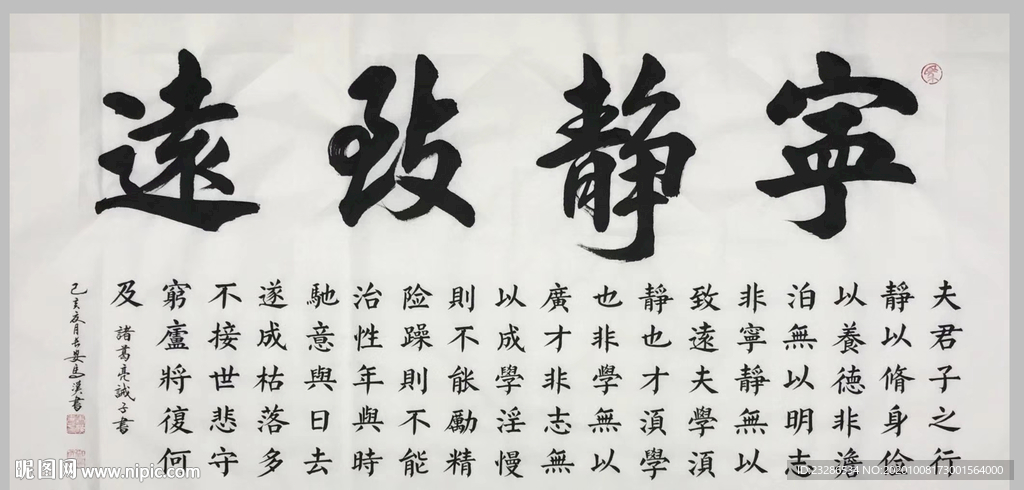 寧靜致遠
夫君子之行
靜以脩身儉
以養德非澹
泊無以明志
非寧靜無以
致遠夫學須
靜也才須學
也非學無以
廣才非志無
以成學淫慢
則不能勵精
险躁則不能
治性年與時
馳意與日去
遂成枯落多
不接世悲守
窮廬將復何
及
諸葛亮誡子書
己亥
昵图网 www.nipic.com
ID:23286534 NO:20201008173001564000